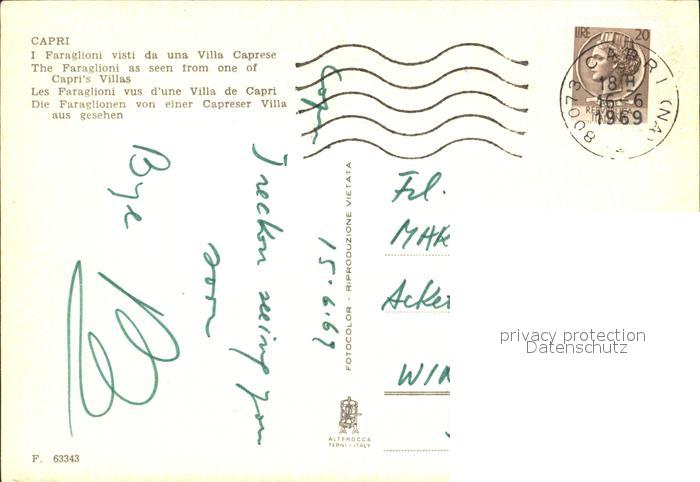 CAPRI
I Faraglioni visti da una Villa Caprese
The Faraglioni as seen from one of
Capri's Villas
Les Faraglioni vus d'une Villa de Capri
Die Faraglionen von einer Capreser Villa
aus gesehen
LIRE 20
80073 CAPRI (NA)
18 H
16-6
1969
Capri
15.6.69
I reckon seeing you
soon
Bye
FOTOCOLOR - RIPRODUZIONE VIETATA
Frl.
Acke
WIN
privacy protection
Datenschutz
ALTEROCCA
TERNI - ITALY
F. 63343